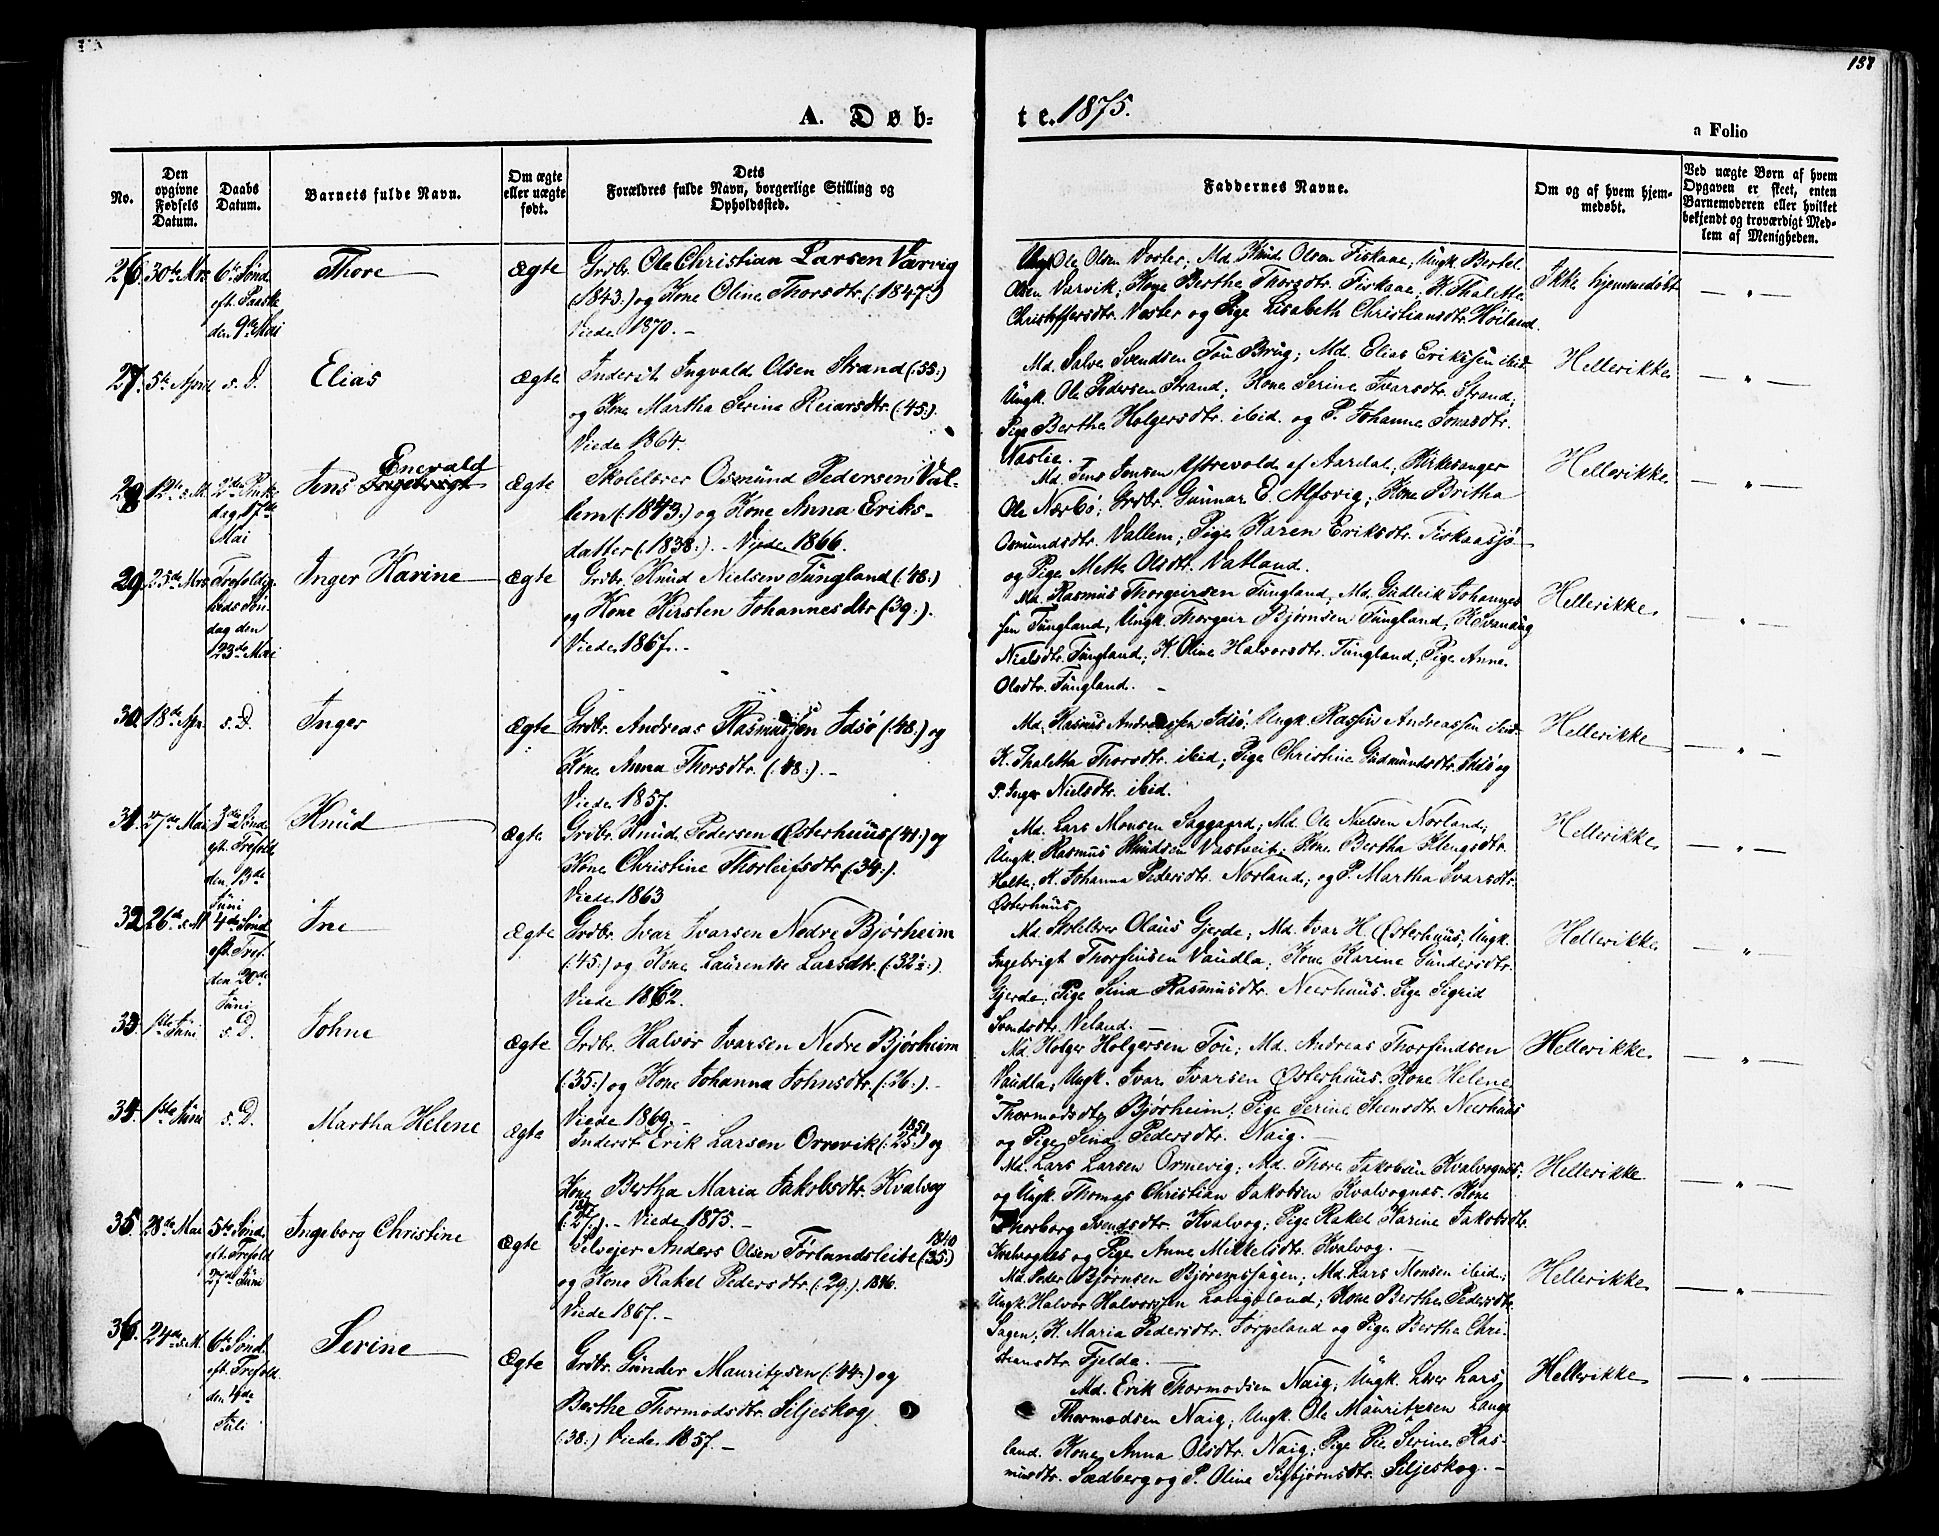 138
A. Døb=
te. 1875.
a Folio
No.
Den
opgivne
Fødsels
Datum.
Daabs
Datum.
Barnets fulde Navn.
Om ægte
eller uægte
født.
Dets
Forældres fulde Navn, borgerlige Stilling og
Opholdssted.
Faddernes Navne.
Om og af hvem hjem-
medøbt.
Ved uægte Børn af hvem
Opgaven er skeet, enten
Barnemoderen eller hvilket
bekjendt og troværdigt Med-
lem af Menigheden.
26. 30te Mrs
6te Sønd.
eft. Paaske
den 9de Mai
Thore
Ægte
Grdbr. Ole Christian Larsen Varvig
(1843:) og Kone Oline Thorsdtr. (:1847:)
Viede 1870. -
Ungk. Ole Olsen Voster; Md. Knud Olsen Fiskaae; Ungk. Bertel
Olsen Varvik; Kone Berthe Thorsdtr. Fiskaae; K. Thalette
Christoffersdtr. Voster og Pige Lisabeth Christiansdtr. Høiland.
Ikke hjemmedøbt
— " —
27. 5te April
s. D.
Elias
Ægte
Inderst Ingvald Olsen Strand (:35:)
og Kone Martha Serine Reiarsdtr. (:45:)
Viede 1864.
Md. Salve Svendsen Tou Brug; Md. Elias Erikssen ibid
Ungk. Ole Pedersen Strand; Kone Serine Ivarsdtr. Strand;
Pige Berthe Holgersdtr. ibid. og P. Johanne Jonasdtr.
Naslie.
Hellerikke
— " —
28. 12te s. M.
2den Pintse
dag 17de
Mai
Jens Enevald
Ingebrigt
Ægte
Skolelærer Osmund Pedersen Val-
lem (:1843:) og Kone Anna Eriks-
datter (:1838:). - Viede 1866.
Md. Jens Jonsen Østrevold af Aardal; Kirkesanger
Ole Nærbø; Grdbr. Gunnar E. Alfsvig; Kone Britha
Osmundsdtr. Vallem; Pige Karen Eriksdtr. Fiskaasjø
og Pige Mette Olsdtr. Vatland.
Hellerikke
— " —
29. 25de Mrs
Trefoldig-
heds Søn-
dag den
23de Mai
Inger Karine
Ægte
Grdbr. Knud Nielsen Tungland (:48:)
og Kone Kirsten Johannesdtr (39:).
Viede 1867. -
Md. Rasmus Thorgeirsen Tungland; Md. Gudleik Johannes
sen Tungland; Ungk. Thorgeir Bjørnsen Tungland; K.
Nielsdtr. Tungland; K. Oline Halvorsdtr. Tungland; Pige Anne
Olsdtr. Tungland. -
Hellerikke
— " —
30. 18de Apr.
s. D.
Inger
Ægte
Grdbr. Andreas Rasmussen Idsø (:48:) og
Kone Anna Thorsdtr. (:48:). -
Viede 1857.
Md. Rasmus Andreassen Idsø. Ungk. Andreassen ibid
K. Thaletta Thorsdtr. ibid; Pige Christine Gudmundsdtr. Idsø og
P. Inger Nielsdtr. ibid.
Hellerikke
— " —
31. 27de Mai
3die Sønd.
eft. Trefold.
den 13de
Juni
Knud
Ægte
Grdbr. Knud Pedersen Østerhuus (41:) og
Kone Christine Thorleifsdtr. (:34:).
Viede 1863
Md. Lars Monsen Saggaard; Md. Ole Nielsen Norland;
Ungk. Rasmus Knudsen Vastveit; Kone Bertha Klengsdtr.
Holte; K. Johanna Pedersdtr. Norland; og P. Martha Ivarsdtr.
Østerhuus
Hellerikke
— " —
32 26de s. M.
4de Sønd
eft. Tref.
den 20de
Juni
Ine
Ægte
Grdbr. Ivar Ivarsen Nedre Bjørheim
(:45:) og Kone Laurentse Larsdtr. (:32:).
Viede 1862.
Md. Skolelærer Olaus Gjerde; Md. Ivar H. Østerhuus; Ungk.
Ingebrigt Thorfinsen Vaudla; Kone Karine Gundersdtr.
Gjerde; Pige Sina Rasmusdtr. Neerhuus. Pige Sigrid
Svendsdtr. Veland. —
Hellerikke
— " —
33. 1ste Juni
s. D.
Johne
Ægte
Grdbr. Halvor Ivarsen Nedre Bjørheim
(:35:) og Kone Johanna Johnsdtr. (:26:). -
Viede 1869. -
Md. Holger Holgersen Tou; Md. Andreas Thorfindsen
Vaudla; Ungk. Ivar Ivarsen Østerhuus. Kone Helene
Thormodsdtr. Bjørheim; Pige Serine Steensdtr. Neerhuus
og Pige Sina Pedersdtr. Naig. —
Hellerikke
— " —
34. 1ste Juni
s. D.
Martha Helene
Ægte
Inderst Erik Larsen Orrevik (:25:) 1851 og
Kone Bertha Maria Jakobsdtr. Kvalvog
(:27:). - Viede 1875. -
Md. Lars Larsen Ormevig; Md. Thore Jakobsen Kvalvognes;
og Ungk. Thomas Christian Jakobsen Kvalvognes. Kone
Thorborg Svendsdtr. Kvalvog; Pige Rakel Karine Jakobsdtr.
Kvalvognes og Pige Anne Mikkelsdtr. Kvalvog. —
Hellerikke
— " —
35. 28de Mai
5te Sønd.
eft. Trefold
27de Juni
Ingeborg Christine
Ægte
Selveier Anders Olsen Førlandsleite (35:) 1840
og Kone Rakel Pedersdtr. (:29:). 1846.
Viede 1867. -
Md. Peder Bjørnsen Bjøremssagen; Md. Lars Monsen ibid;
Ungk. Halvor Halvorsen Langeland; Kone Berthe Pedersdtr.
Sagen; K. Maria Pedersdtr. Torpeland og Pige Berthe Chri-
stensdtr. Fjelde. —
Hellerikke
— " —
36. 24de s. M.
6te Sønd.
eft. Trefold.
den 4de
Juli
Serine
Ægte
Grdbr. Gunder Mauritzsen (:44:) og
Berthe Thormodsdtr. Siljeskog
(:38:) Viede 1857. -
Md. Erik Thormodsen Naig; Ungk. Lars
Thormodsen Naig; Ungk. Ole Mauritzsen Lange
land. Kone Anna Olsdtr. Naig; Pige Serine Ras-
musdtr. Sædberg og P. Oline Sigbjørnsdtr. Siljeskog. —
Hellerikke
— " —